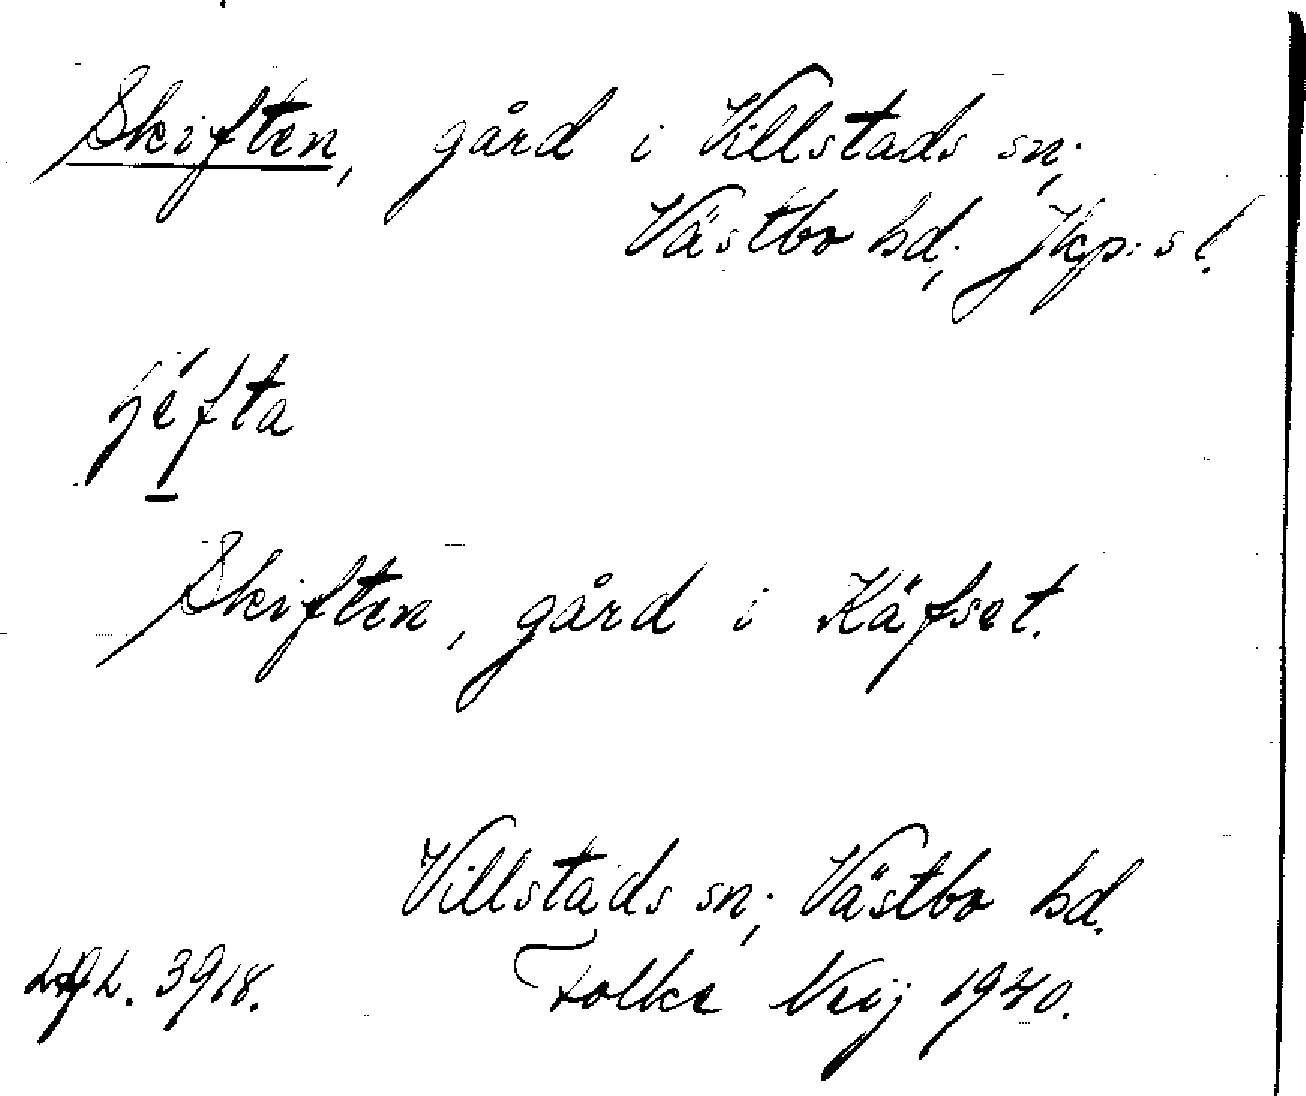 Skiften, gård i Villstads sn;
Västbo hd; Jkp:s l.
Skiften, gård i Käfset.
Villstads sn; Västbo hd.
3918. Folke Neij 1940.